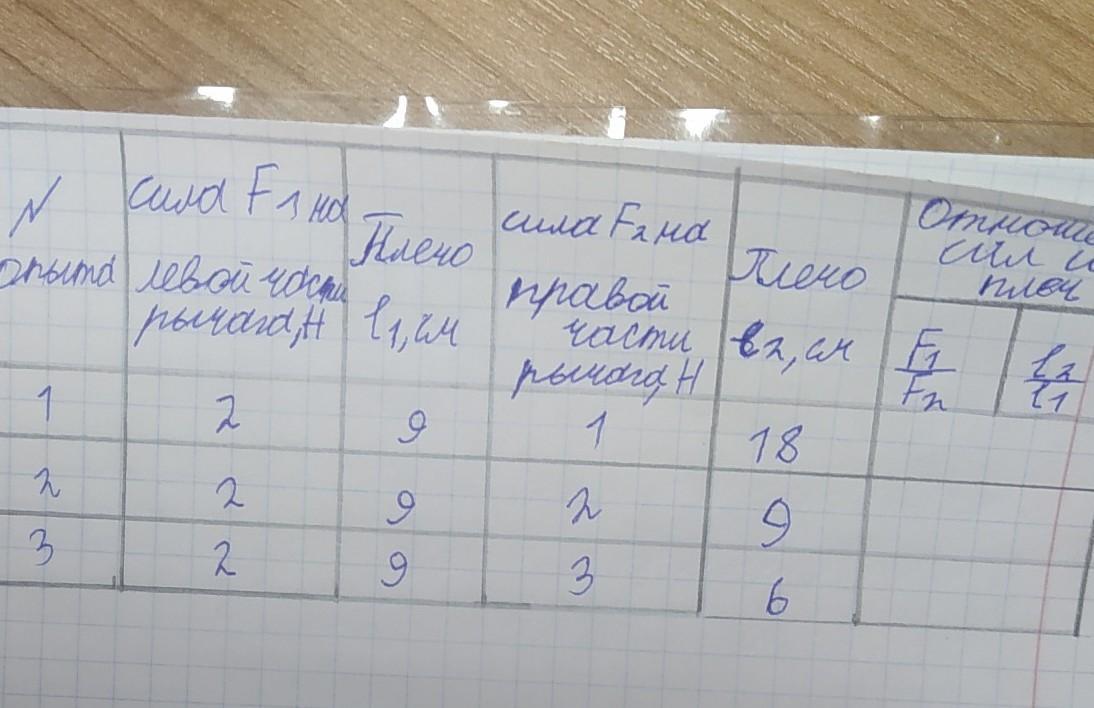 N
опыта
сила F1 на
левой части
рычага, Н
Плечо
l1, см
сила F2 на
правой
части
рычага, Н
Плечо
l2, см
Отноше
сил и
плеч
F1
F2
l2
l1
1 2 9 1 18
2 2 9 2 9
3 2 9 3 6